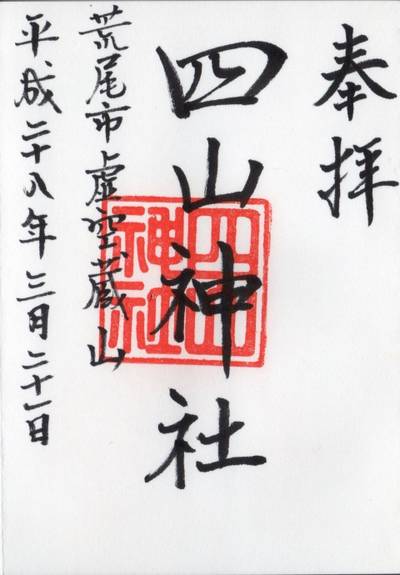 奉拝
四山神社
四山神社
荒尾市虚空蔵山
平成二十八年三月二十一日